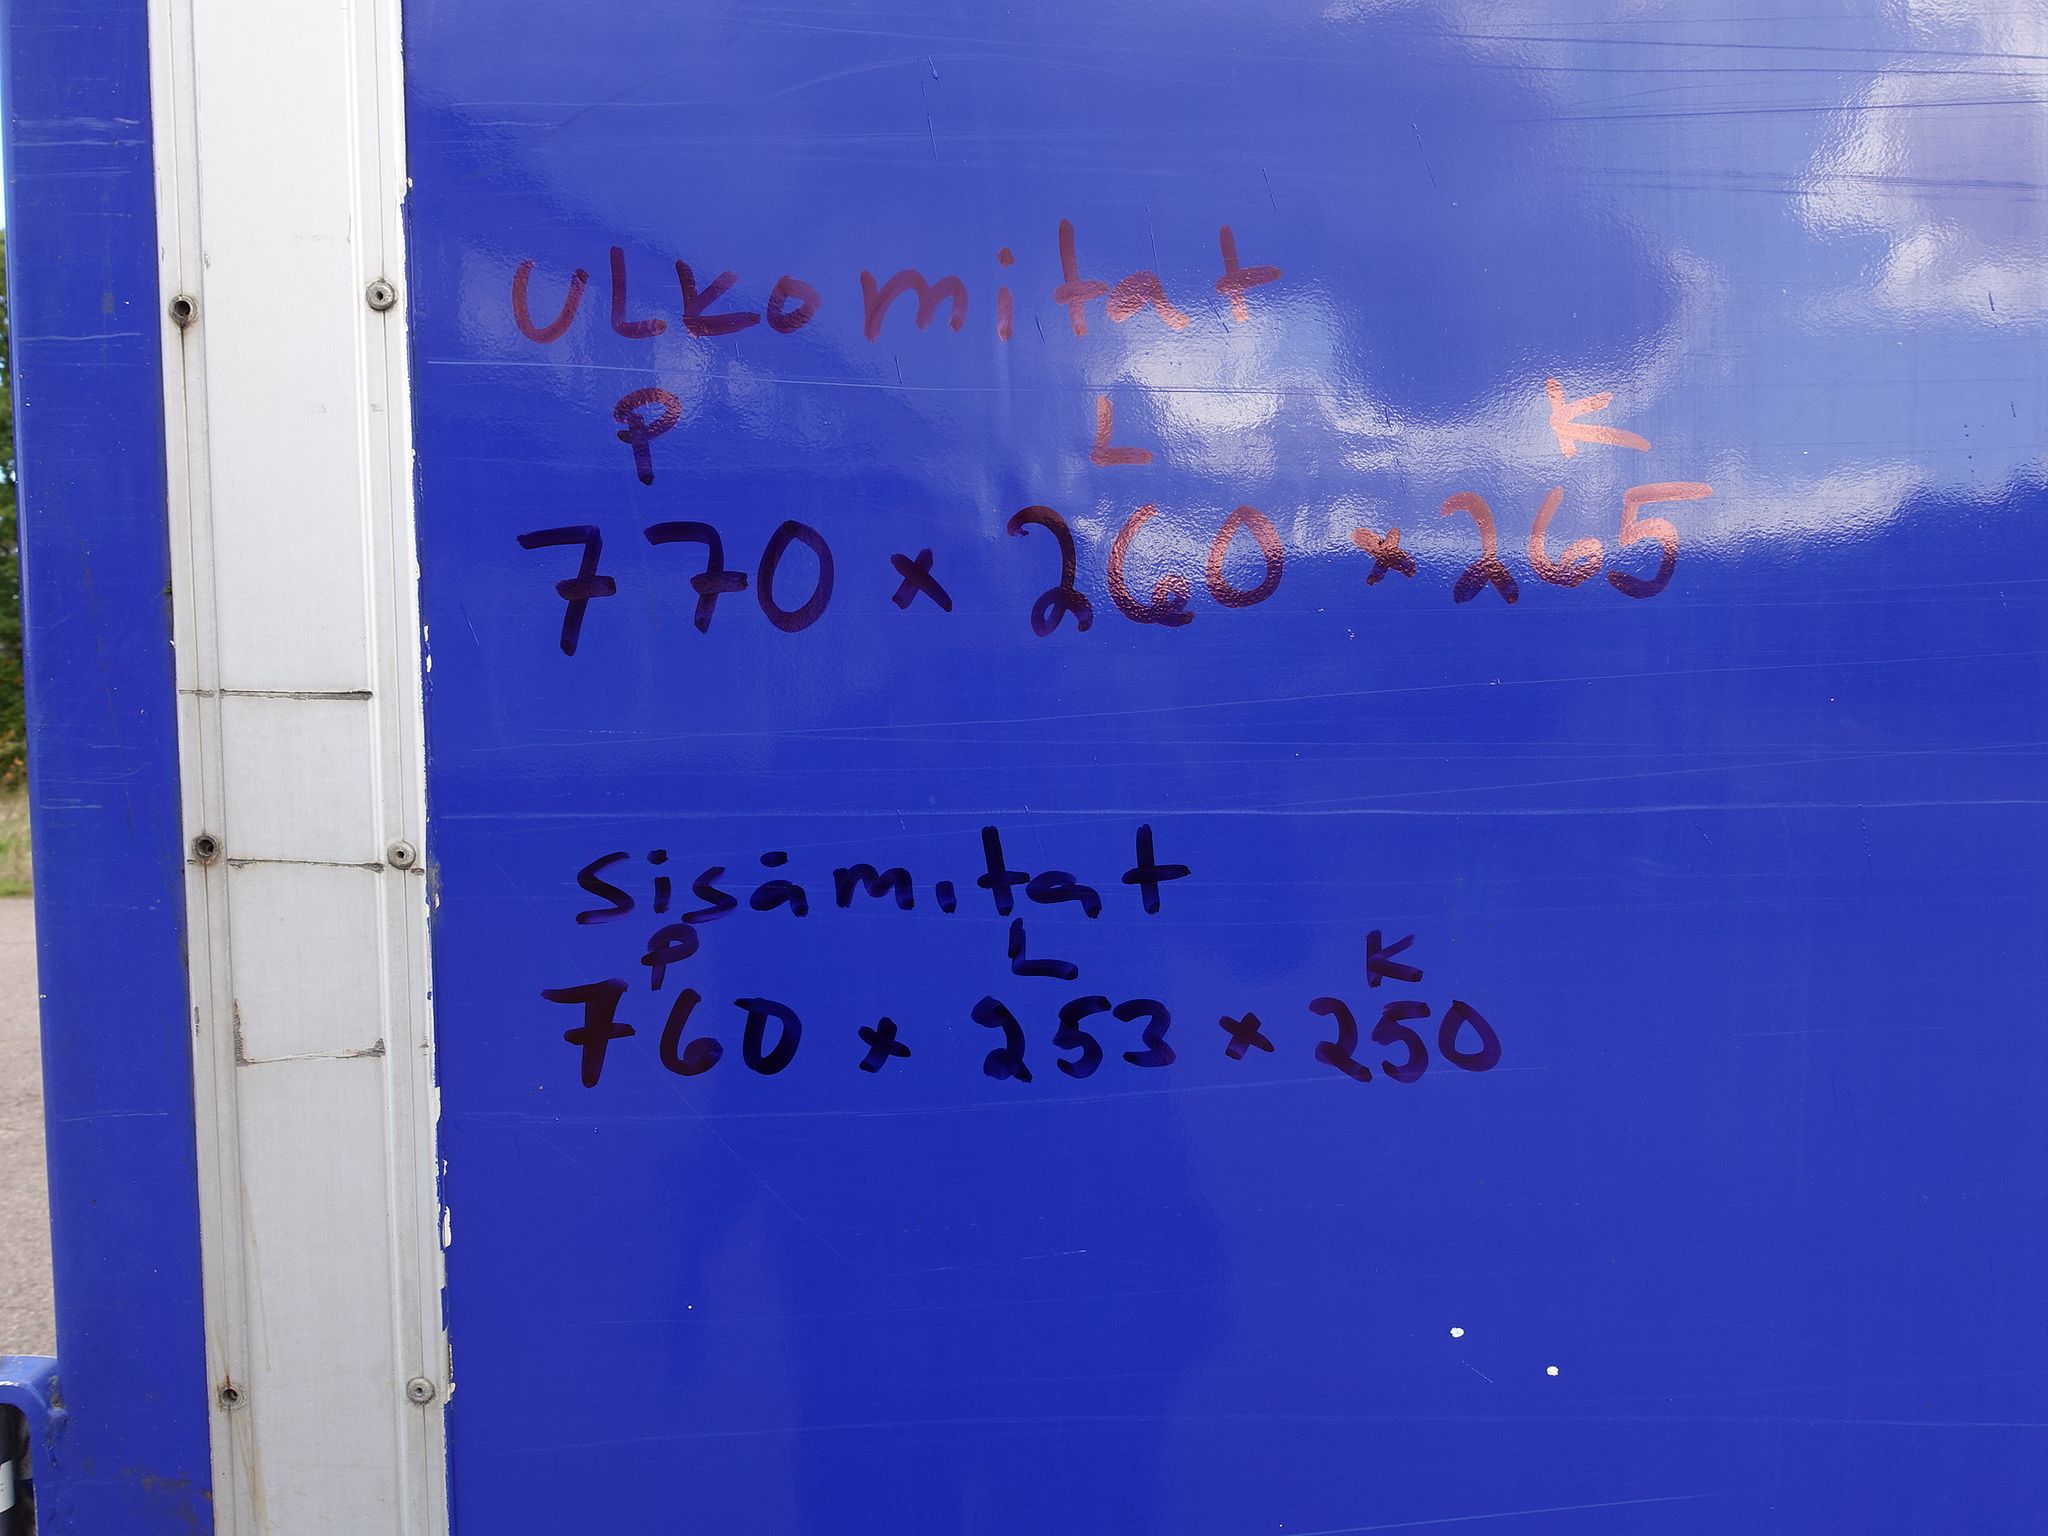 ulkomitat
P L K
770 x 260 x 265
sisämitat
P L K
760 x 253 x 250